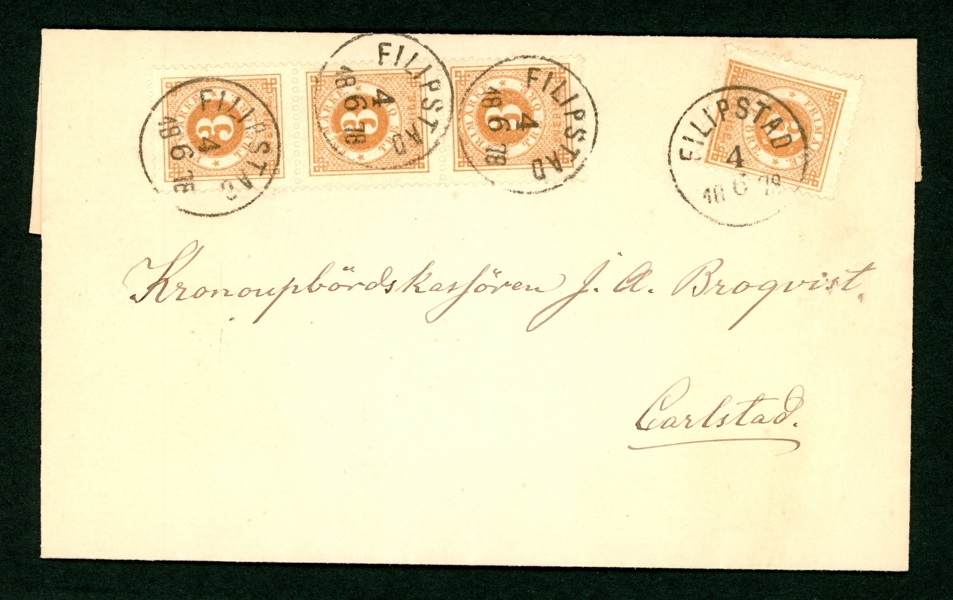 FILIPSTAD
4
18 6 78
FILIPSTAD
4
18 6 78
FILIPSTAD
4
18 6 78
FILIPSTAD
4
18 6 78
3
3
3
3
FRIMÄRKE
Kronouppbördskassören J. A. Broqvist.
Carlstad.